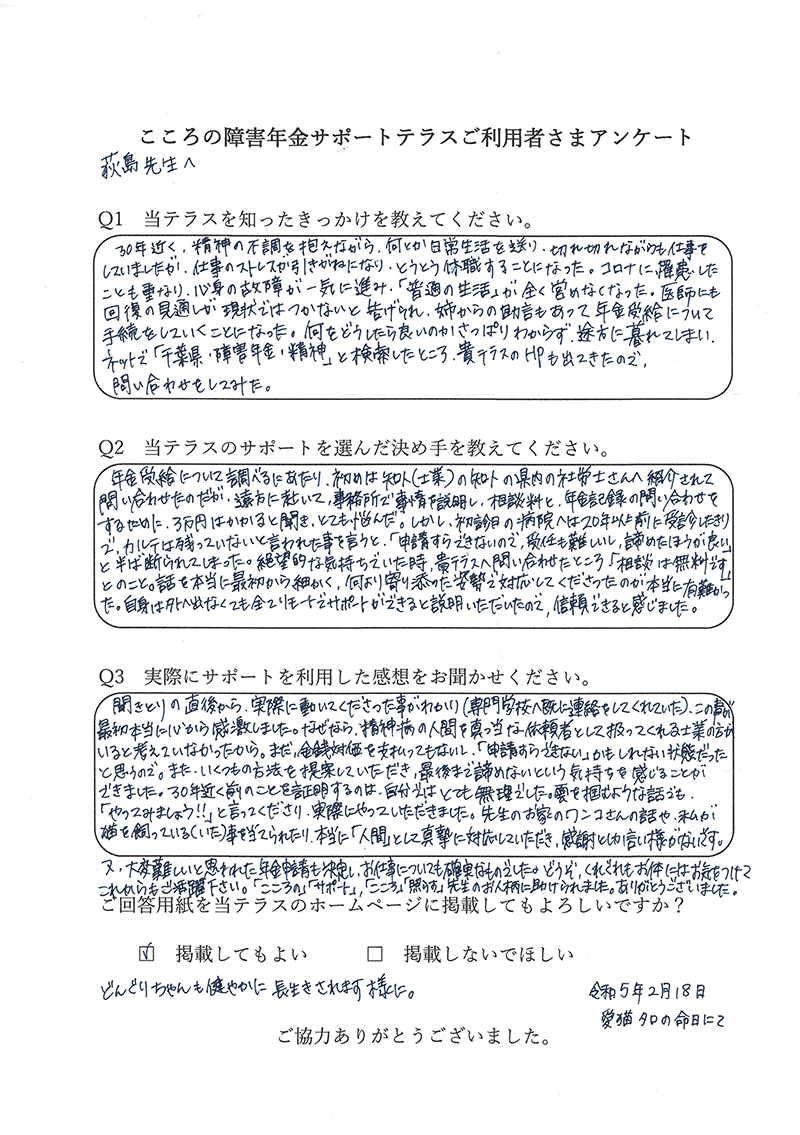 こころの障害年金サポートテラスご利用者さまアンケート
荻島先生へ
Q1 当テラスを知ったきっかけを教えてください。
30年近く、精神の不調を抱えながら、何とか日常生活を送り、切れ切れながらも仕事を
していましたが、仕事のストレスが引きがねになり、とうとう休職することになった。コロナに罹患した
ことも重なり、心身の故障が一気に進み、「普通の生活」が全く営めなくなった。医師にも
回復の見通しが現状ではつかないと告げられ、姉からの助言もあって年金受給について
手続をしていくことになった。何をどうしたら良いのかさっぱりわからず、途方に暮れてしまい、
ネットで「千葉県・障害年金・精神」と検索したところ、貴テラスのHPも出てきたので、
問い合わせをしてみた。
Q2 当テラスのサポートを選んだ決め手を教えてください。
年金受給について調べるにあたり、初めは知人(士業)の知人の県内の社労士さんへ紹介されて
問い合わせたのだが、遠方に赴いて、事務所で事情を説明し、相談料と、年金記録の問い合わせを
するために、3万円はかかると聞き、とても悩んだ。しかし、初診日の病院へは20年以上前に受診したきり
で、カルテは残っていないと言われた事を言うと、「申請すらできないので、受任も難しいし、諦めたほうが良い」
と半ば断られてしまった。絶望的な気持ちでいた時、貴テラスへ問い合わせたところ「相談は無料です」
とのこと。話を本当に最初から細かく、何より寄り添った姿勢で対応してくださったのが本当に有難かっ
た。自身は外へ出なくても全てリモートでサポートができると説明いただいたので、信頼できると感じました。
Q3 実際にサポートを利用した感想をお聞かせください。
聞きとりの直後から、実際に動いてくださった事がわかり(専門学校へ既に連絡をしてくれていた)、この事が
最初本当に心から感激しました。なぜなら、精神病の人間を真っ当な依頼者として扱ってくれる士業の方が
いると考えていなかったから。まだ、金銭対価を支払ってもないし、「申請すらできない」かもしれない状態だった
と思うので。また、いくつもの方法を提案していただき、最後まで諦めないという気持ちを感じることが
できました。30年近く前のことを証明するのは、自分ではとても無理でした。雲を掴むような話でも、
「やってみましょう!!」と言ってくださり、実際にやっていただきました。先生のお家のワンコさんの話や、私が
猫を飼っている(いた)事を当てられたり、本当に「人間」として真摯に対応していただき、感謝としか言い様がないです。
又、大変難しいと思われた年金申請も決定し、お仕事についても確実なものでした。どうぞ、くれぐれもお体にはお気をつけて
これからもご活躍下さい。「こころの」「サポート」、「こころ」「照らす」先生のお人柄に助けられました。ありがとうございました。
ご回答用紙を当テラスのホームページに掲載してもよろしいですか?
☑ 掲載してもよい □ 掲載しないでほしい
どんぐりちゃんも健やかに長生きされます様に。
令和5年2月18日
愛猫タロの命日にて
ご協力ありがとうございました。